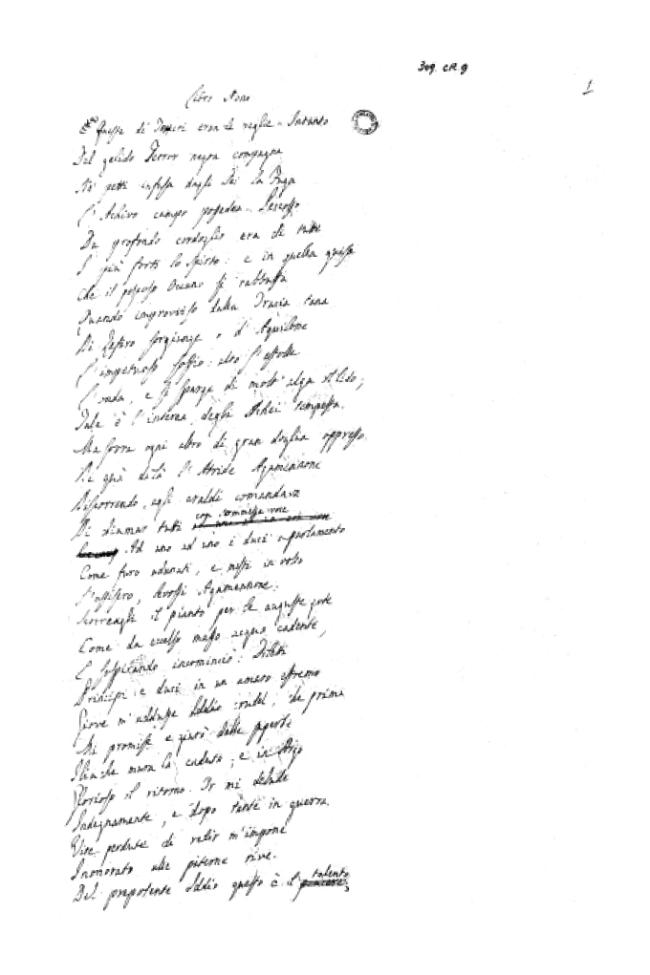 309. CR. 9
1
Libro Nono
Queste de' Teucri eran le veglie. Intanto
Del gelido Terror negra compagna
Ne' petti infissa dagli Dei la Fuga
L'Achivo campo possedea. Percosso
Da profondo cordoglio era di tutti
I più forti lo spirto: e in quella guisa
Che il pescoso Oceano si rabbuffa
Quando improvviso dalla Tracia tana
Di Zefiro sorgiunge e d'Aquilone
L'impetuoso soffio: alto s'estolle
L'onda, e si sparge di molt'alga il lido;
Tale è l'interna degli Achei tempesta.
Ma sovra ogni altro di gran doglia oppresso
Di qua di là l'Atride Agamennone
Discorrendo, agli araldi comandava
Di chiamar tutti con sommessa voce
Ad uno ad uno i duci a parlamento
Come furo adunati, e mesti in volto
S'assisero, levossi Agamennone.
Scorreagli il pianto per le auguste gote
Come da eccelso masso acqua cadente,
E sospirando incominciò: Diletti
Principi e duci in un amaro estremo
Giove m'addusse Iddio crudel, che prima
Mi promise e giurò delle superbe
Iliache mura la caduta; e in Argo
Glorioso il ritorno. Or mi delude
Indegnamente, e dopo tante in guerra
Vite perdute di redir m'impone
Inonorato alle paterne rive.
Del prepotente Iddio questo è il talento,